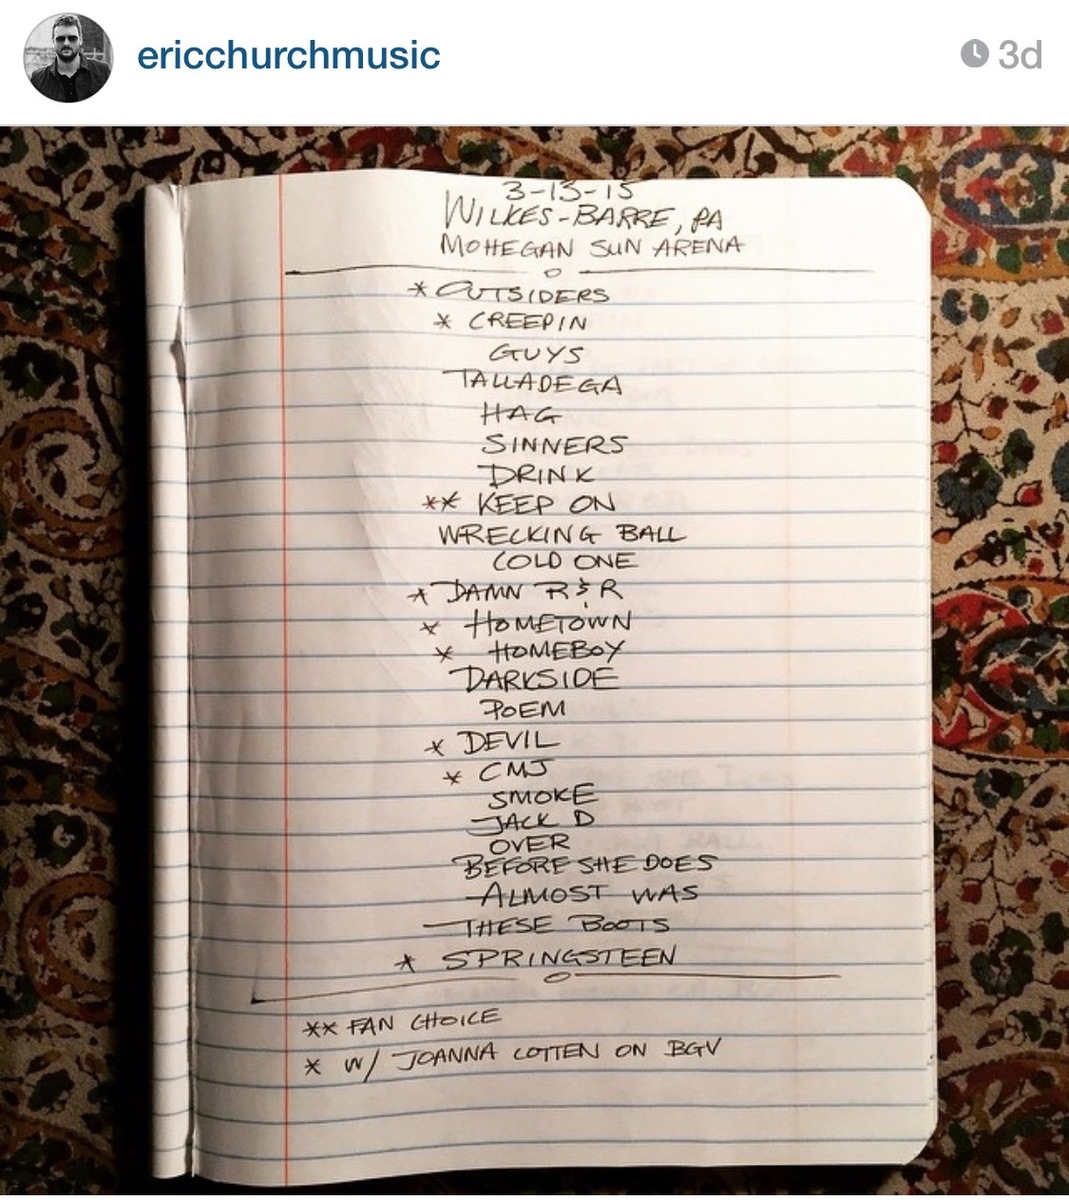 ericchurchmusic
3d
3-13-15
WILKES-BARRE, PA
MOHEGAN SUN ARENA
* OUTSIDERS
* CREEPIN
GUYS
TALLADEGA
HAG
SINNERS
DRINK
** KEEP ON
WRECKING BALL
COLD ONE
* DAMN R & R
* HOMETOWN
* HOMEBOY
DARKSIDE
POEM
* DEVIL
* CMJ
SMOKE
JACK D
OVER
BEFORE SHE DOES
ALMOST WAS
THESE BOOTS
* SPRINGSTEEN
** FAN CHOICE
* W/ JOANNA COTTEN ON BGV